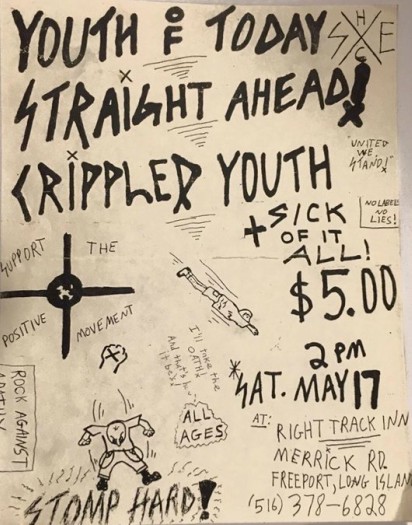 YOUTH OF TODAY
H
S X E
C
STRAIGHT AHEAD!
"UNITED
WE
STAND!"
CRIPPLED YOUTH
+ SICK
OF IT
ALL!
NO LABELS
NO
LIES!
$5.00
SUPPORT THE
POSITIVE MOVEMENT
I'll take the
OATH!
And that's
2 PM
*SAT. MAY 17
ALL
AGES
AT:
RIGHT TRACK INN
MERRICK RD.
FREEPORT, LONG ISLAN
(516) 378-6828
ROCK AGAINST
STOMP HARD!